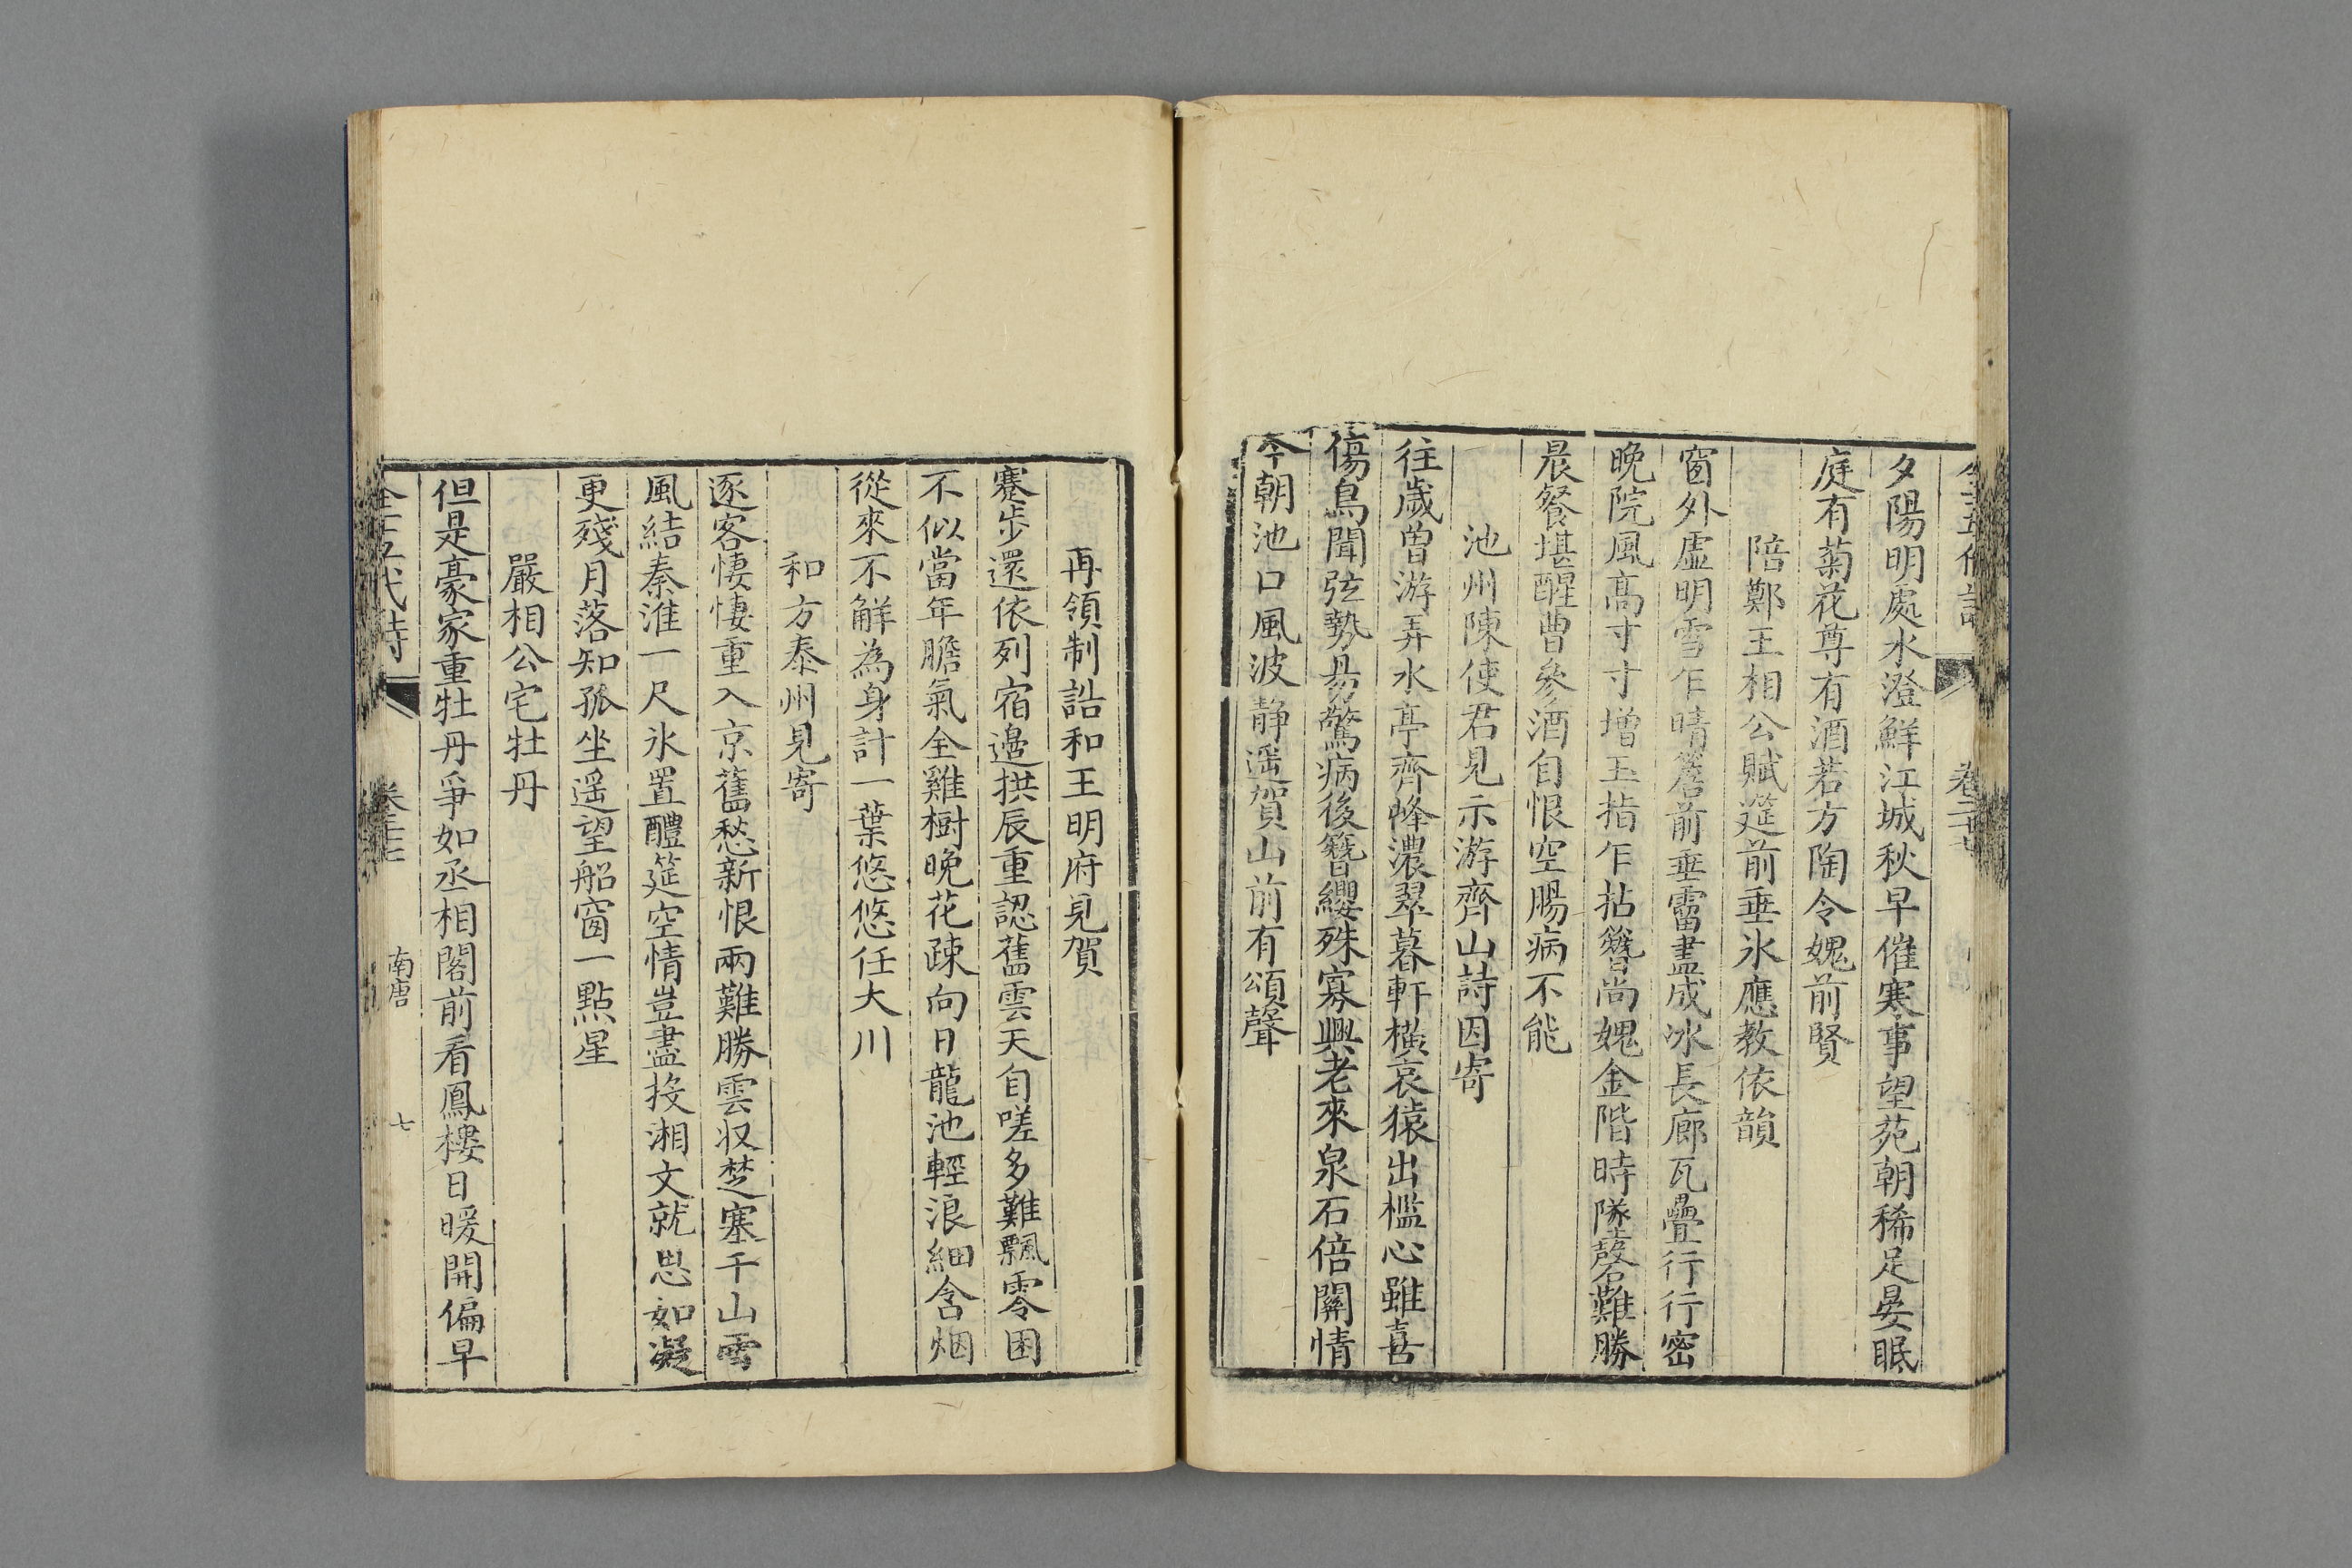 夕陽明處水澄鮮江城秋早催寒事望苑朝稀足晏眠
庭有菊花尊有酒若方陶令媿前賢
陪鄭王相公賦筵前垂氷應教依韻
窗外虛明雪乍晴簷前垂霤盡成冰長廊瓦疊行行密
晚院風高寸寸增玉指乍拈簪尚媿金階時墜磬難勝
晨餐堪醒曹參酒自恨空腸病不能
池州陳使君見示游齊山詩因寄
往歲曾游弄水亭齊峰濃翠暮軒橫哀猿出檻心雖喜
傷鳥聞弦勢易驚病後簪纓殊寡興老來泉石倍關情
今朝池口風波靜遥賀山前有頌聲
再領制誥和王明府見賀
蹇步還依列宿邊拱辰重認舊雲天自嗟多難飄零困
不似當年膽氣全雞樹晚花疎向日龍池輕浪細含烟
從來不解為身計一葉悠悠任大川
和方泰州見寄
逐客悽悽重入京舊愁新恨兩難勝雲収楚塞千山雪
風結秦淮一尺氷置醴筵空情豈盡投湘文就思如凝
更殘月落知孤坐遥望船窗一點星
嚴相公宅牡丹
但是豪家重牡丹爭如丞相閣前看鳳樓日暖開偏早
全五代詩 南唐 七